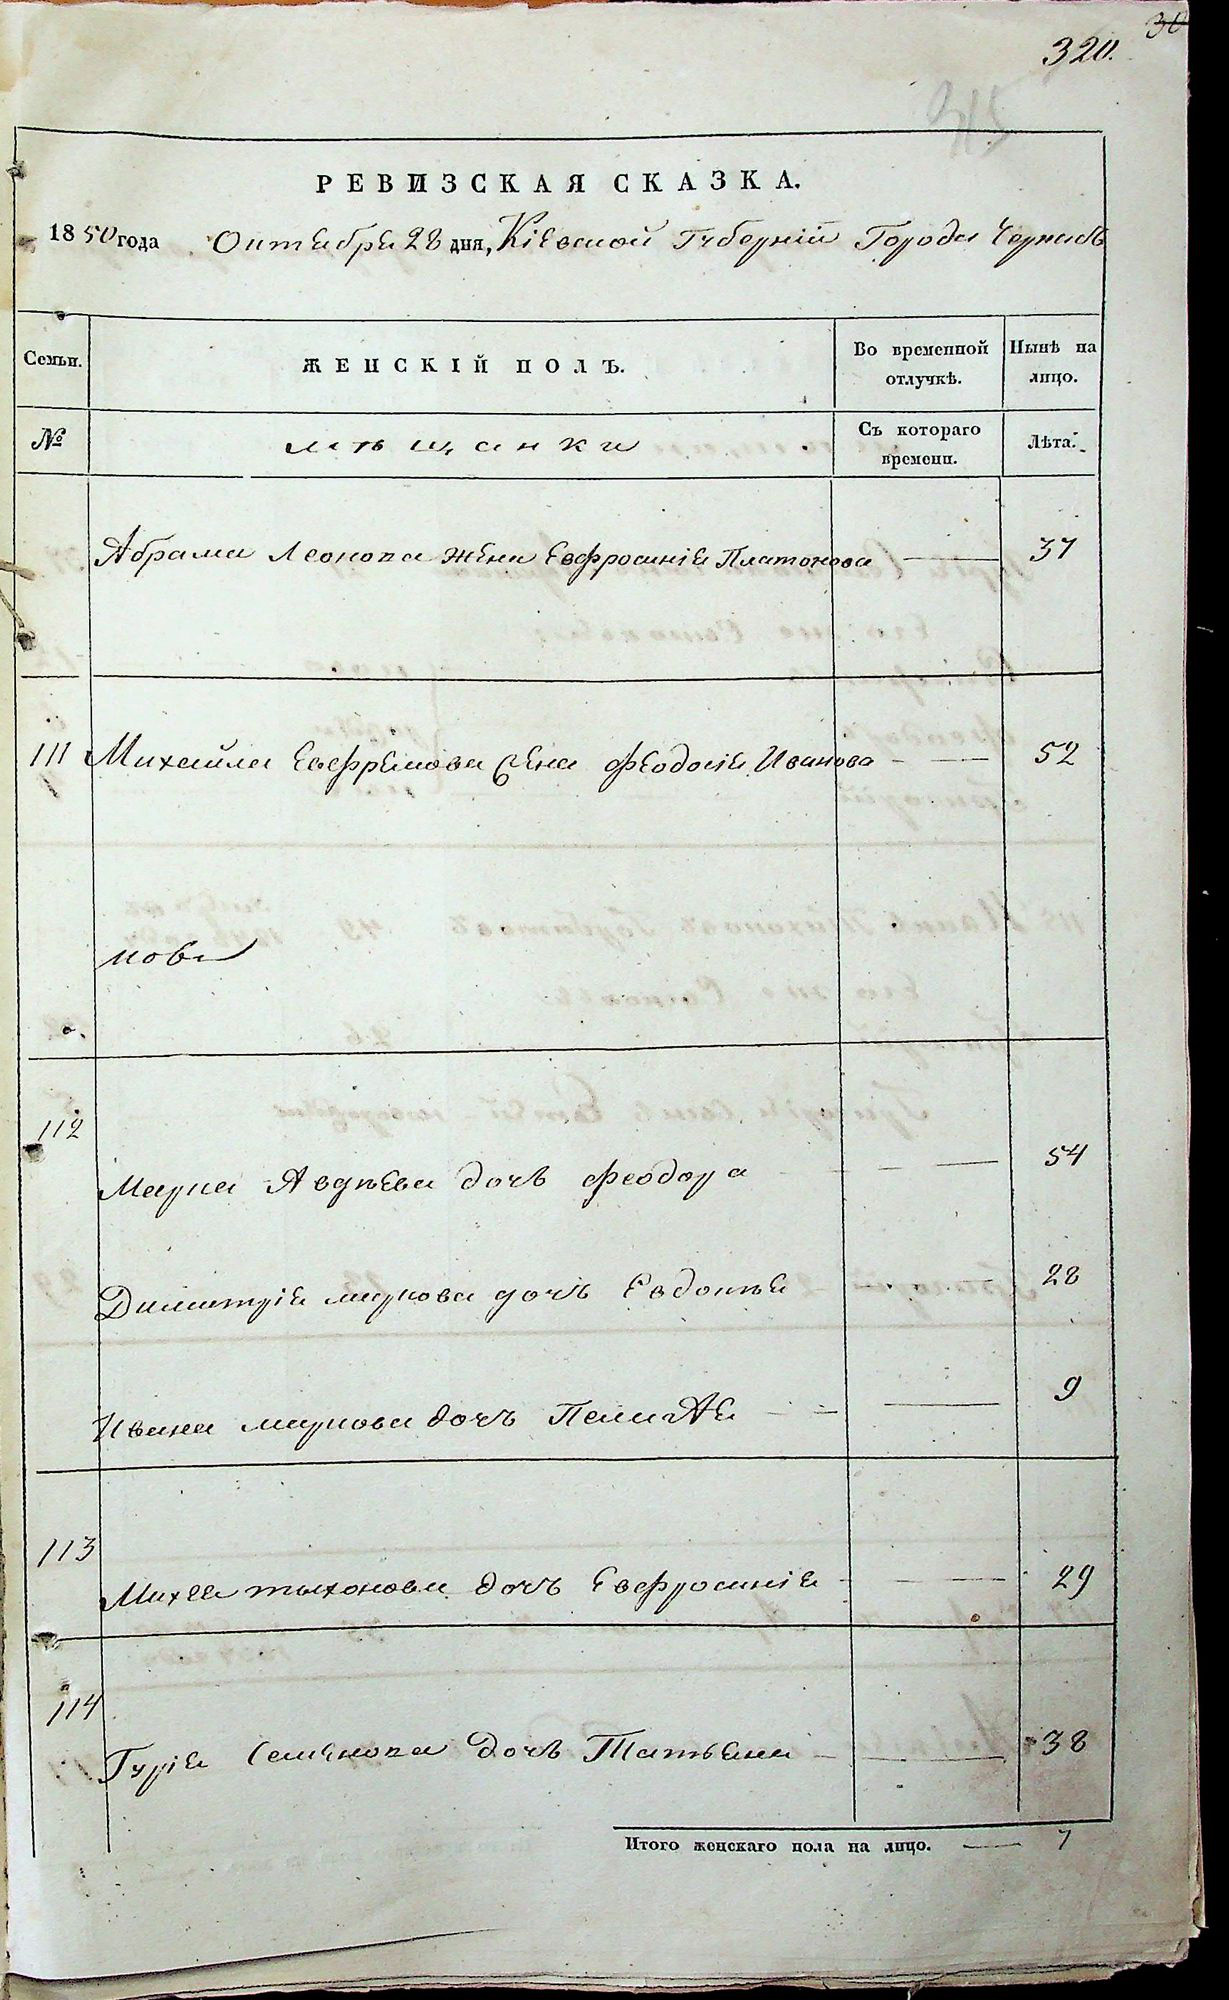 30
320.
315
РЕВИЗСКАЯ СКАЗКА.
1850 года Октября 28 дня, Кіевской Губерній Города Черкасъ
Семьи.
ЖЕНСКІЙ ПОЛЪ.
Во временной отлучкѣ.
Нынѣ на лицо.
№
мѣщанки
Съ котораго времени.
Лѣта.
Абрама Леонова жена Евфросинія Платонова — 37
111 Михайла Евфремова жена Феодосія Иванова — 52
нова
112
Марка Авдѣева дочь Феодора — 54
Димитрія Маркова дочь Евдокія — 28
Ивана Маркова дочь Пелагѣя — 9
113
Михея Тихонова дочь Евфросинія — 29
114
Гурія Семенова дочь Татьяна — 38
Итого женскаго пола на лицо. — 7